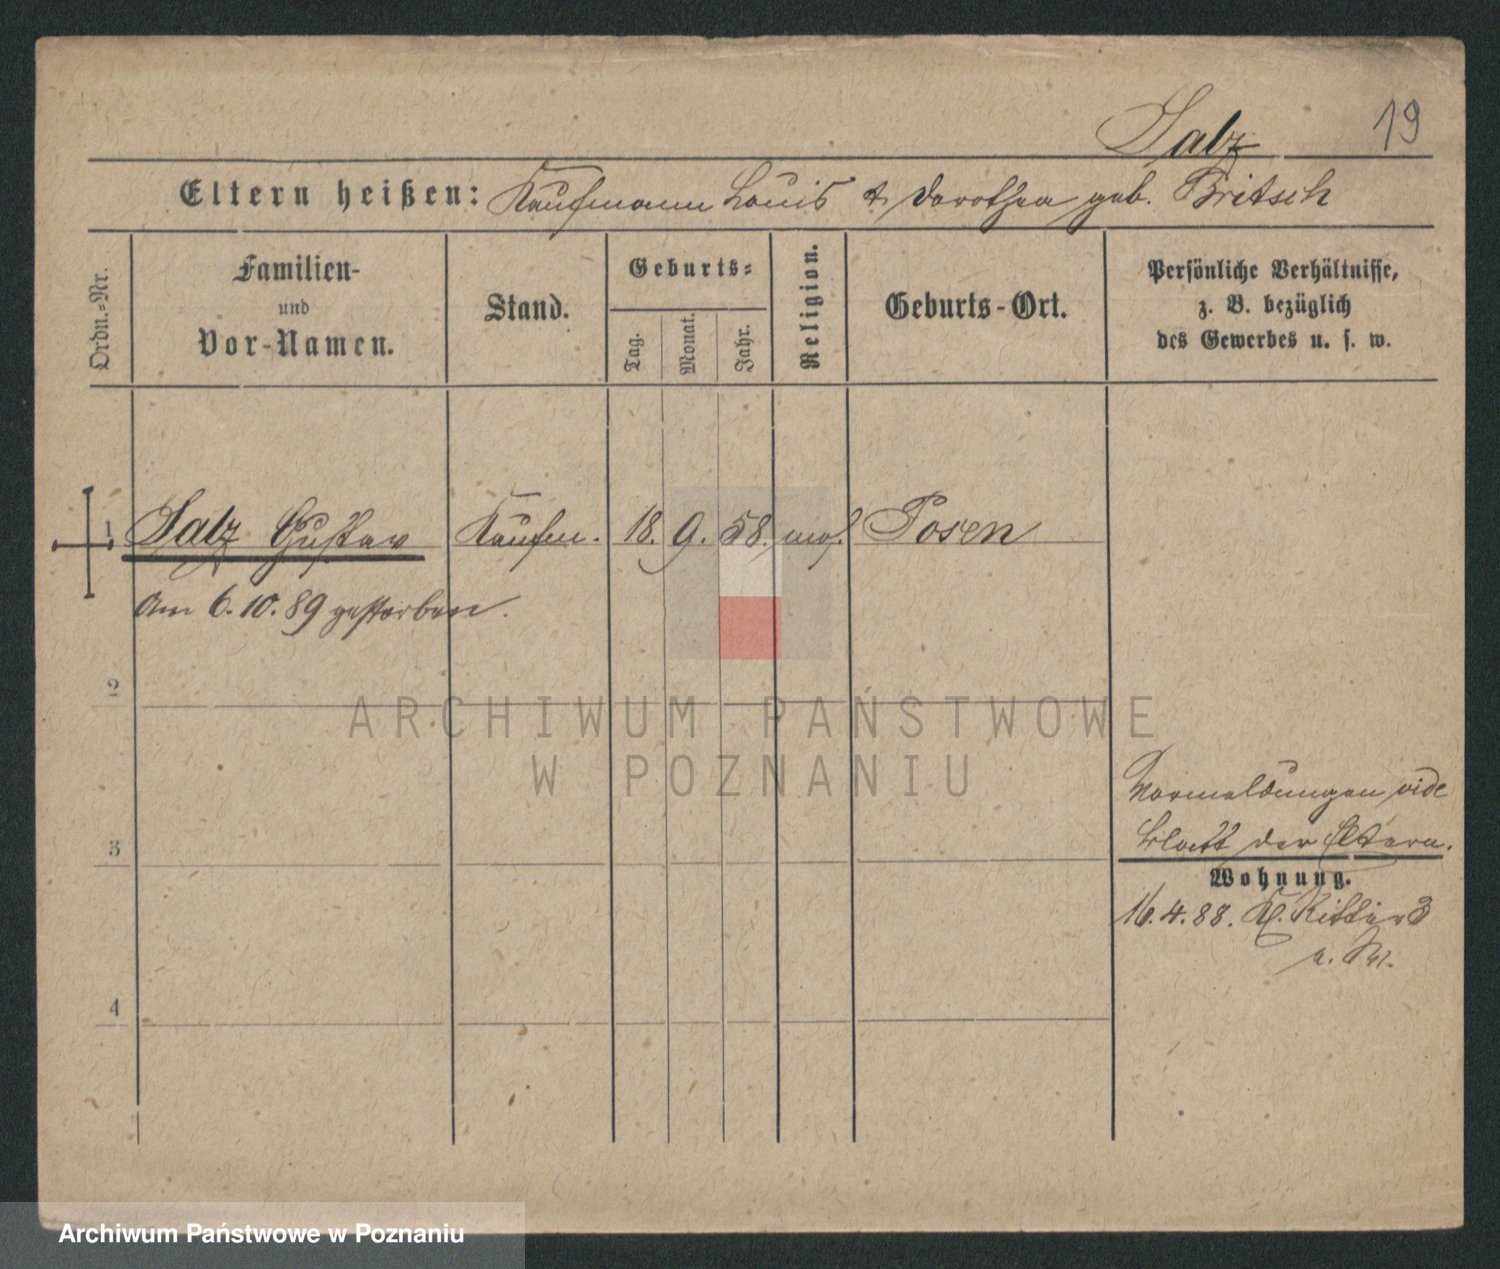 Salz 19
Eltern heißen: Kaufmann Louis & Dorothea geb. Britsch
Ordn.-Nr.
Familien-
und
Vor-Namen.
Stand.
Geburts-
Tag.
Monat.
Jahr.
Religion.
Geburts-Ort.
Persönliche Verhältnisse,
z. B. bezüglich
des Gewerbes u. s. w.
1 Salz Gustav Kaufm. 18. 9. 58. mos. Posen
Am 6.10.89 gestorben.
2
ARCHIWUM PAŃSTWOWE
W POZNANIU
3
4
Vormeldungen vide
Blatt der Eltern.
Wohnung.
16.4.88. Kl. Ritter 3
Archiwum Państwowe w Poznaniu